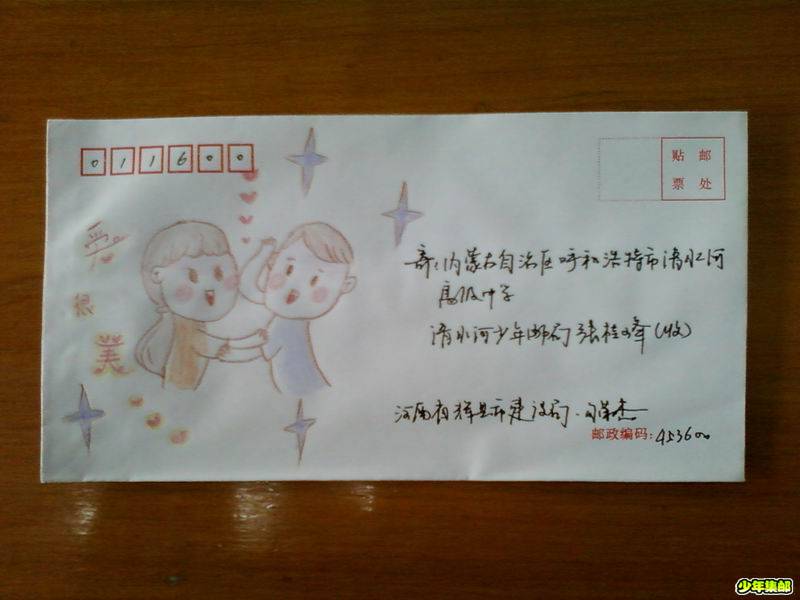 011600
贴 邮
票 处
爱
很
美
寄:内蒙古自治区呼和浩特市清水河
高级中学
清水河少年邮局 张桂峰(收)
河南省辉县市建设局
邮政编码:453600
少年集邮